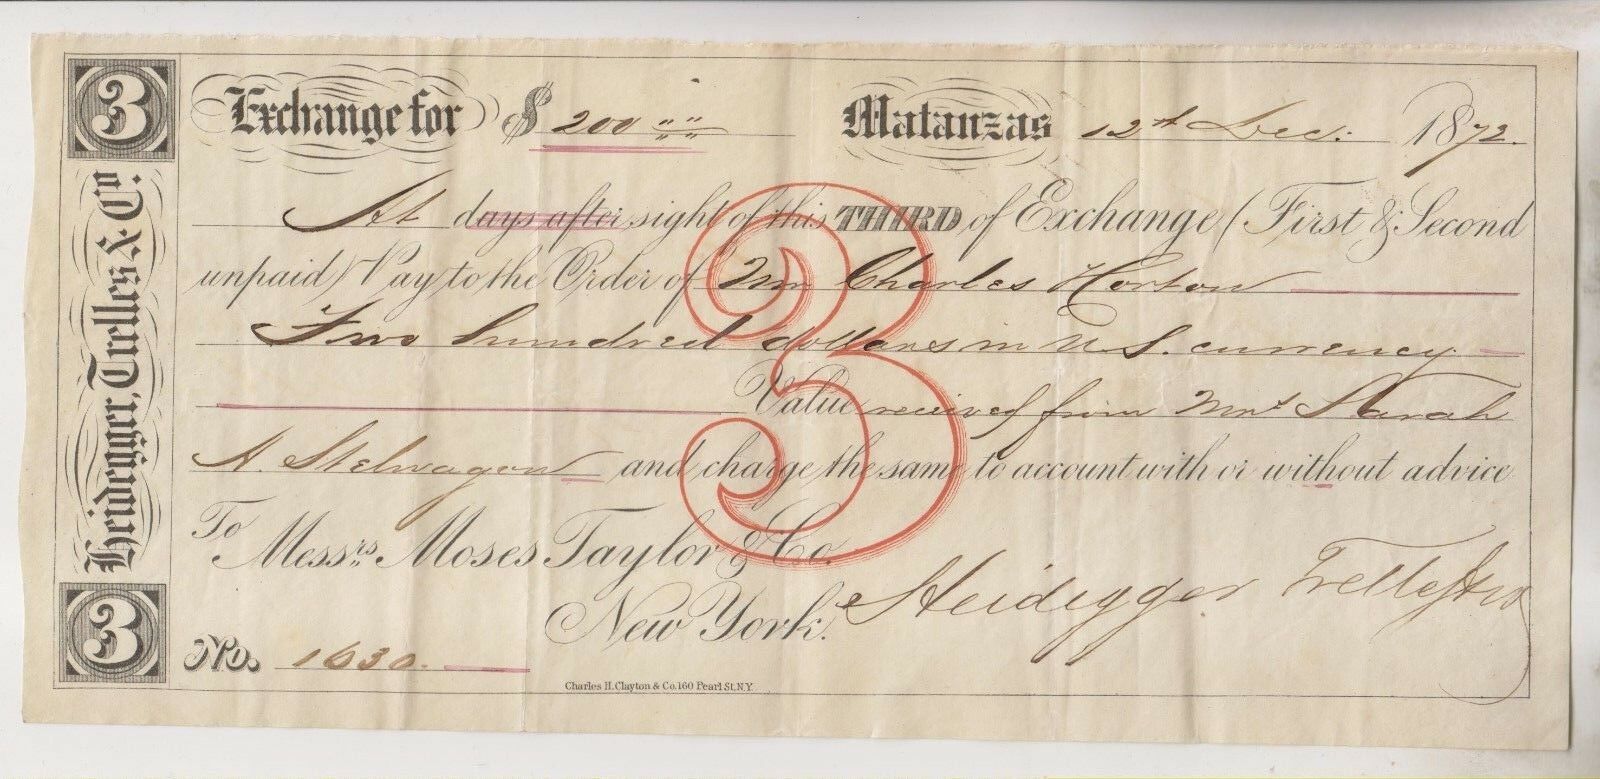 3
Heidegger, Trelles & Co.
3
Exchange for $ 200 "" Matanzas 12th Dec: 1872.
At days after sight of this THIRD of Exchange (First & Second
unpaid) Pay to the Order of Mr Charles Horton
Two hundred dollars in U.S. currency
Value received from Mrs Sarah
A. Stelwagon and charge the same to account with or without advice
To Messrs. Moses Taylor & Co.
New York.
Heidegger Trelles & Co
No. 1630.
3
Charles H. Clayton & Co. 160 Pearl St. N.Y.